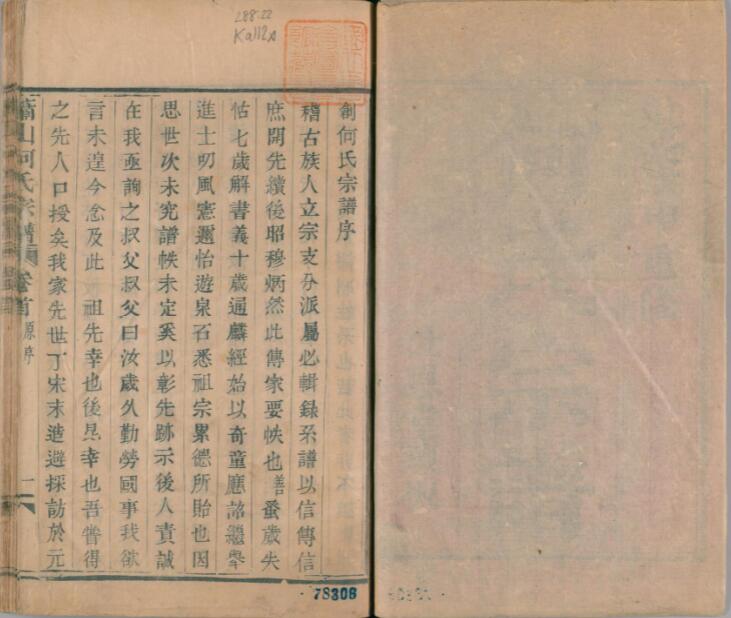 288.22
Ka112A
創何氏宗譜序
稽古族人立宗支分派屬必輯錄系譜以信傳信
庶開先續後昭穆炳然此傳家要帙也善蚤歲失
怙七歲解書義十歲通麟經始以奇童應詔繼舉
進士叨風憲邇怡遊泉石悉祖宗累德所貽也因
思世次未究譜帙未定奚以彰先跡示後人責誠
在我亟詢之叔父叔父曰汝歲久勤勞國事我欲
言未遑今念及此祖先幸也後昆幸也吾嘗得
之先人口授矣我家先世丁宋末造避採訪於元
蕭山何氏宗譜
卷首
原序
一
78306